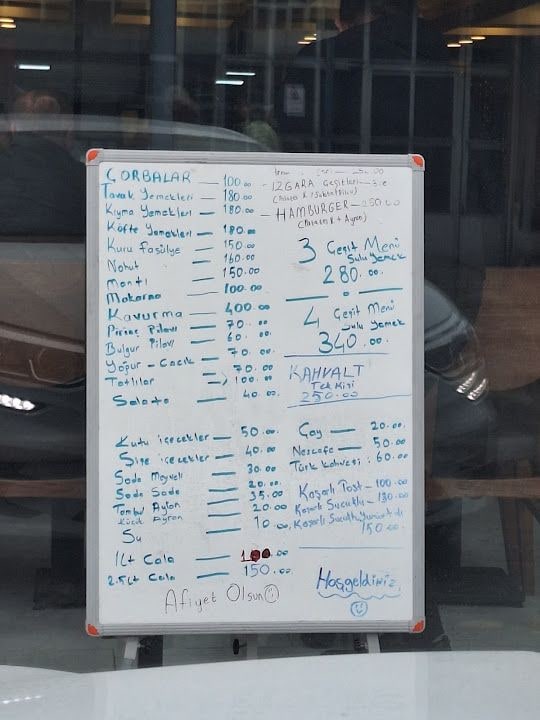 ÇORBALAR — 100.00
Tavuk Yemekleri — 180.00
Kıyma Yemekleri — 180.00
Köfte Yemekleri — 180.00
Kuru Fasülye — 150.00
Nohut — 160.00
Mantı — 150.00
Makarna — 100.00
Kavurma — 400.00
Pirinç Pilavı — 70.00
Bulgur Pilavı — 60.00
Yoğur - Cacık — 70.00
Tatlılar — 70.00
100.00
Salata — 40.00
Kutu içecekler — 50.00
Şişe içecekler — 40.00
Soda Meyveli — 30.00
Soda Sade — 20.00
Ayran — 35.00
Küçük Ayran — 20.00
Su — 10.00
1 Lt Cola — 100.00
2.5 Lt Cola — 150.00
Afiyet Olsun ☺
IZGARA Çeşitleri
HAMBURGER — 250.00
+ Ayran)
3 Çeşit Menü
Sulu Yemek
280.00
4 Çeşit Menü
Sulu Yemek
340.00
KAHVALT
Tek Kişi
250.00
Çay — 20.00
Nescafe — 50.00
Türk kahvesi : 60.00
Kaşarlı Tost — 100.00
Kaşarlı Sucuklu — 130.00
Kaşarlı Sucuklu Yumurtalı
150.00
Hoşgeldiniz
☺